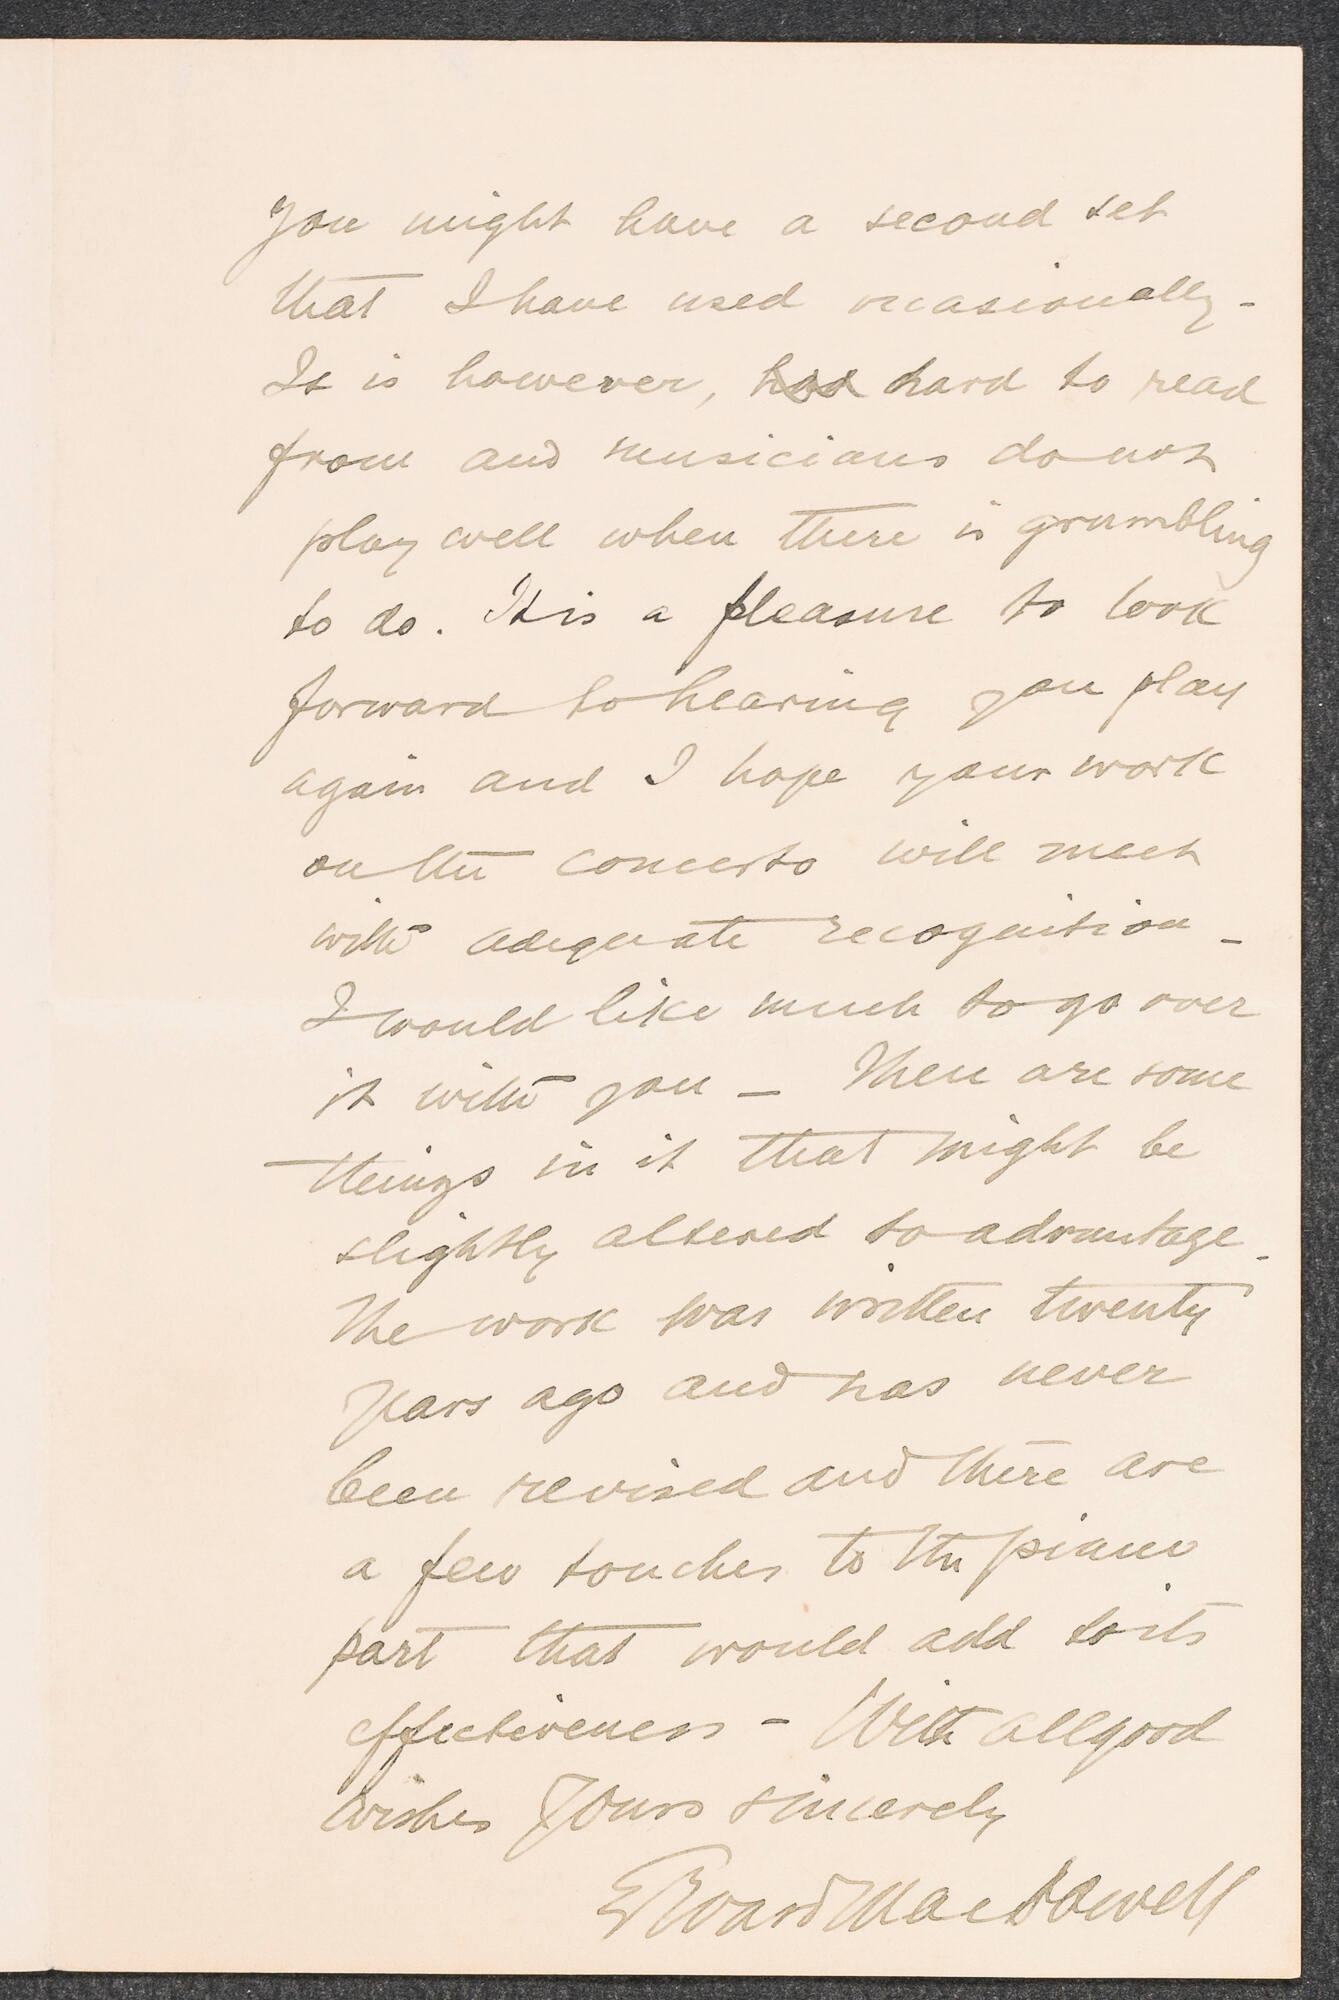 you might have a second set
that I have used occasionally -
It is however, had hard to read
from and musicians do not
play well when there is grumbling
to do. It is a pleasure to look
forward to hearing you play
again and I hope your work
on the concerto will meet
with adequate recognition -
I would like much to go over
it with you - There are some
things in it that might be
slightly altered to advantage -
The work was written twenty
years ago and has never
been revised and there are
a few touches to the piano
part that would add to its
effectiveness - With all good
wishes Yours sincerely
Edward MacDowell